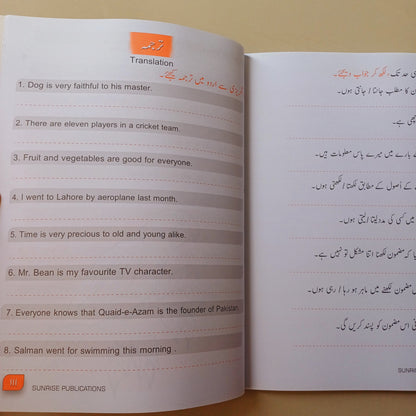 ترجمہ
Translation
انگریزی سے اردو میں ترجمہ کیجئے۔
1. Dog is very faithful to his master.
2. There are eleven players in a cricket team.
3. Fruit and vegetables are good for everyone.
4. I went to Lahore by aeroplane last month.
5. Time is very precious to old and young alike.
6. Mr. Bean is my favourite TV character.
7. Everyone knows that Quaid-e-Azam is the founder of Pakistan.
8. Salman went for swimming this morning .
111
SUNRISE PUBLICATIONS
حد تک، لکھ کر جواب دیجئے۔
کا مطلب جانتا / جانتی ہوں۔
اچھی ہے۔
بارے میں میرے پاس معلومات ہیں۔
کے اُصول کے مطابق لکھتا / لکھتی ہوں۔
میں کسی کی مدد لیتا / لیتی ہوں۔
کہ مضمون لکھنا اتنا مشکل تو نہیں ہے۔
مضمون لکھنے میں ماہر ہو رہا / رہی ہوں۔
اس مضمون کو پسند کریں گی۔
SUNR